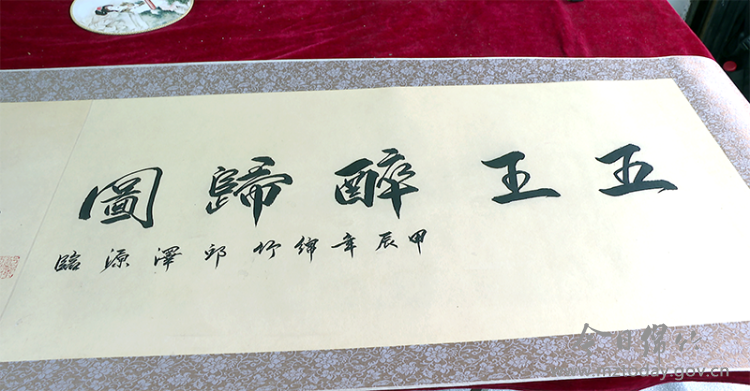 五王醉歸圖
甲辰年綿竹邱澤源臨
今日绵竹
www.mztoday.gov.cn